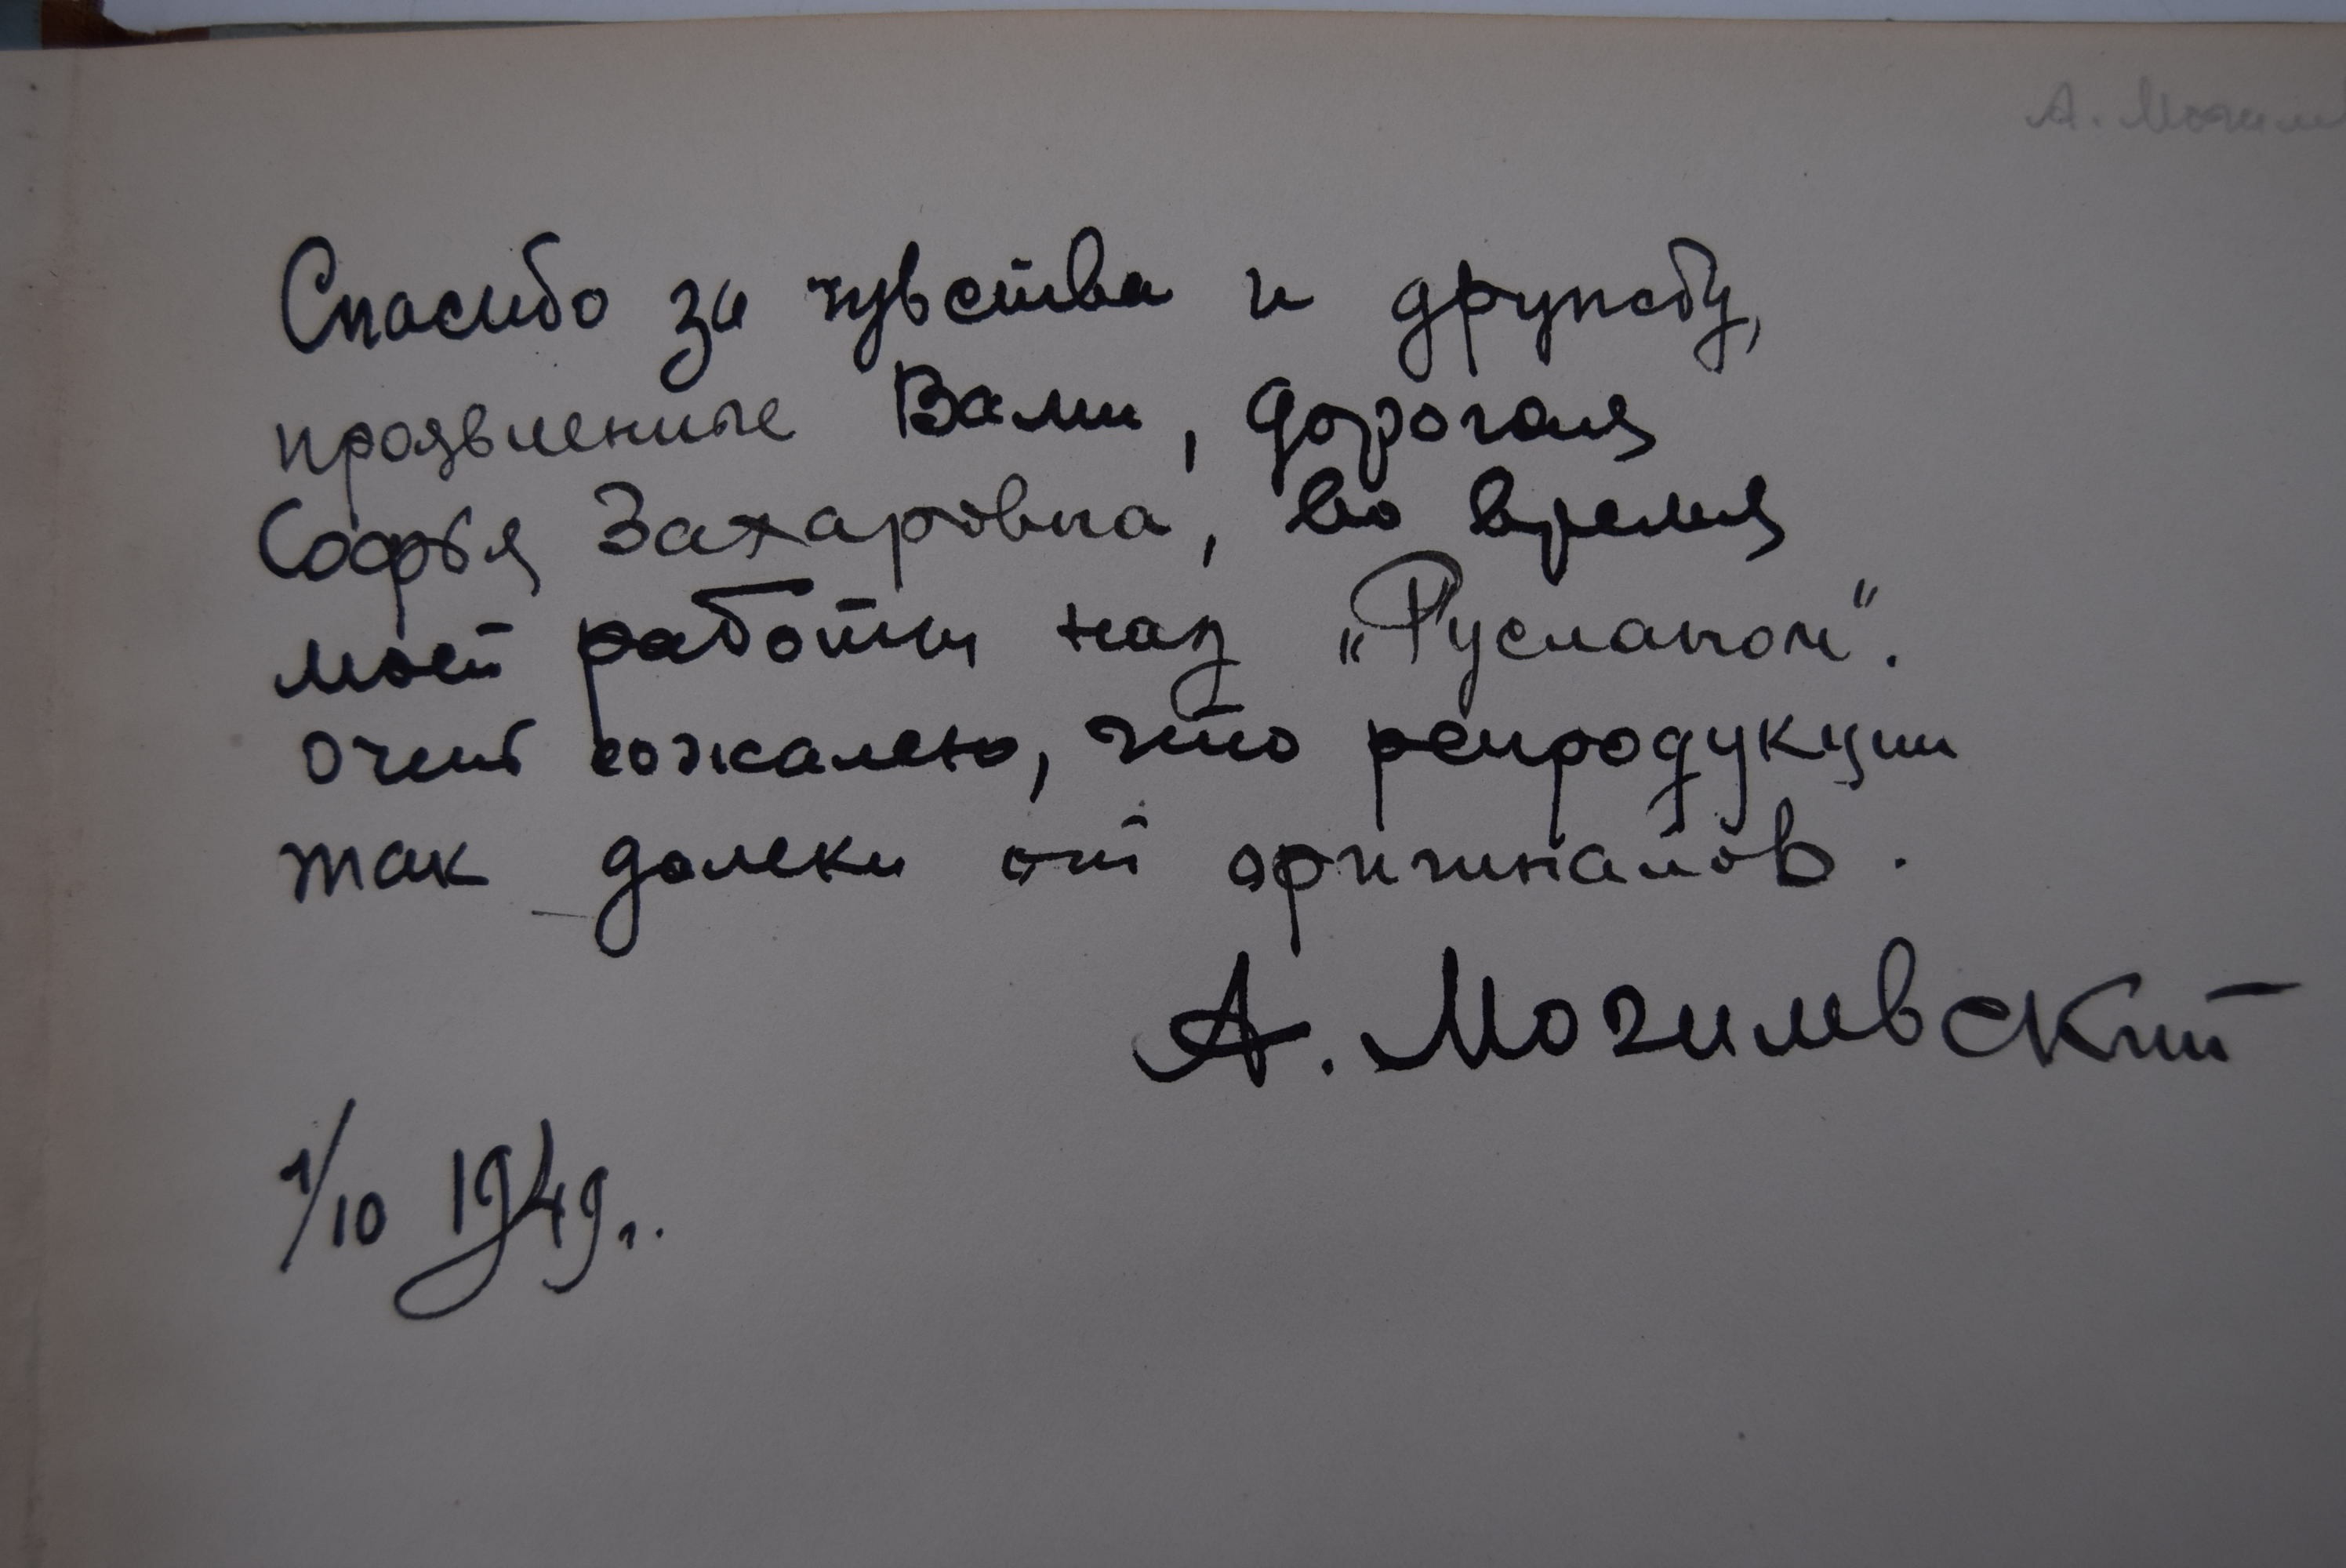 А. Могилев
Спасибо за чувства и дружбу,
проявленные Вами, дорогая
Софья Захаровна, во время
моей работы над „Русланом“.
Очень сожалею, что репродукции
так далеки от оригиналов.
А. Могилевский
1/10 1949 г.